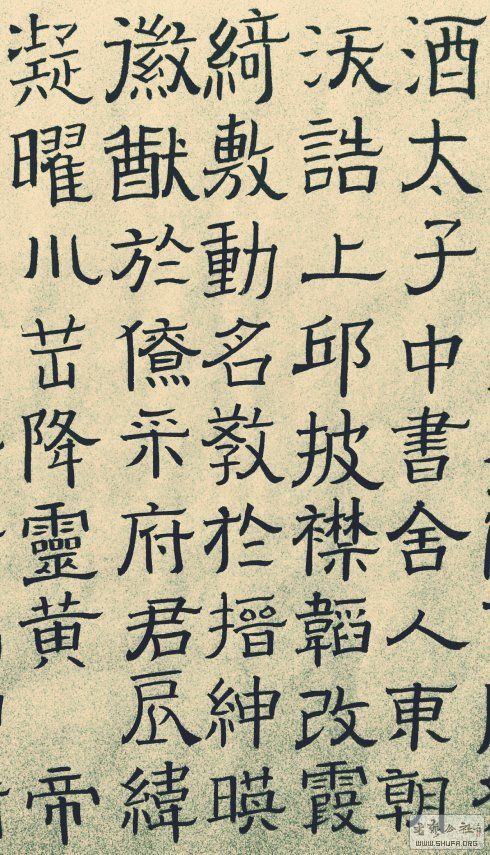 酒太子中書舍人東朝
誥上邱披襟韜改霞
綺敷動名教於搢紳暎
徽猷於僚采府君辰緯
凝曜川岳降靈黄 帝
WWW.SHUFA.ORG